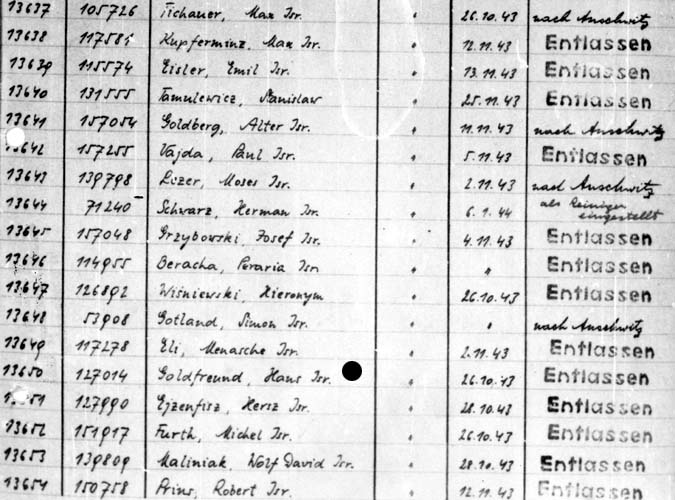 13637 105726 Fichauer, Max Isr. " 26.10.43 nach Auschwitz
13638 117581 Kupferminz, Max Isr. " 12.11.43 Entlassen
13639 115574 Eisler, Emil Isr. " 13.11.43 Entlassen
13640 131555 Tamulewicz, Stanislaw " 25.11.43 Entlassen
13641 157054 Goldberg, Alter Isr. " 11.11.43 nach Auschwitz
13642 157255 Vajda, Paul Isr. " 5.11.43 Entlassen
13643 139798 Lizer, Moses Isr. " 2.11.43 nach Auschwitz
13644 71240 Schwarz, Herman Isr. " 6.1.44 als Reiniger eingestellt
13645 157048 Grzybowski, Josef Isr. " 4.11.43 Entlassen
13646 114955 Beracha, Peraria Isr. " " Entlassen
13647 126892 Wiśniewski, Hieronym " 26.10.43 Entlassen
13648 53908 Gotland, Simon Isr. " " nach Auschwitz
13649 117278 Eli, Menasche Isr. " 2.11.43 Entlassen
13650 127014 Goldfreund, Hans Isr. " 26.10.43 Entlassen
51 127990 Ejzenfisz, Hersz Isr. " 28.10.43 Entlassen
13652 151917 Furth, Michel Isr. " 26.10.43 Entlassen
13653 139809 Maliniak, Wolf David Isr. " 28.10.43 Entlassen
13654 150758 Prins, Robert Isr. " 12.11.43 Entlassen